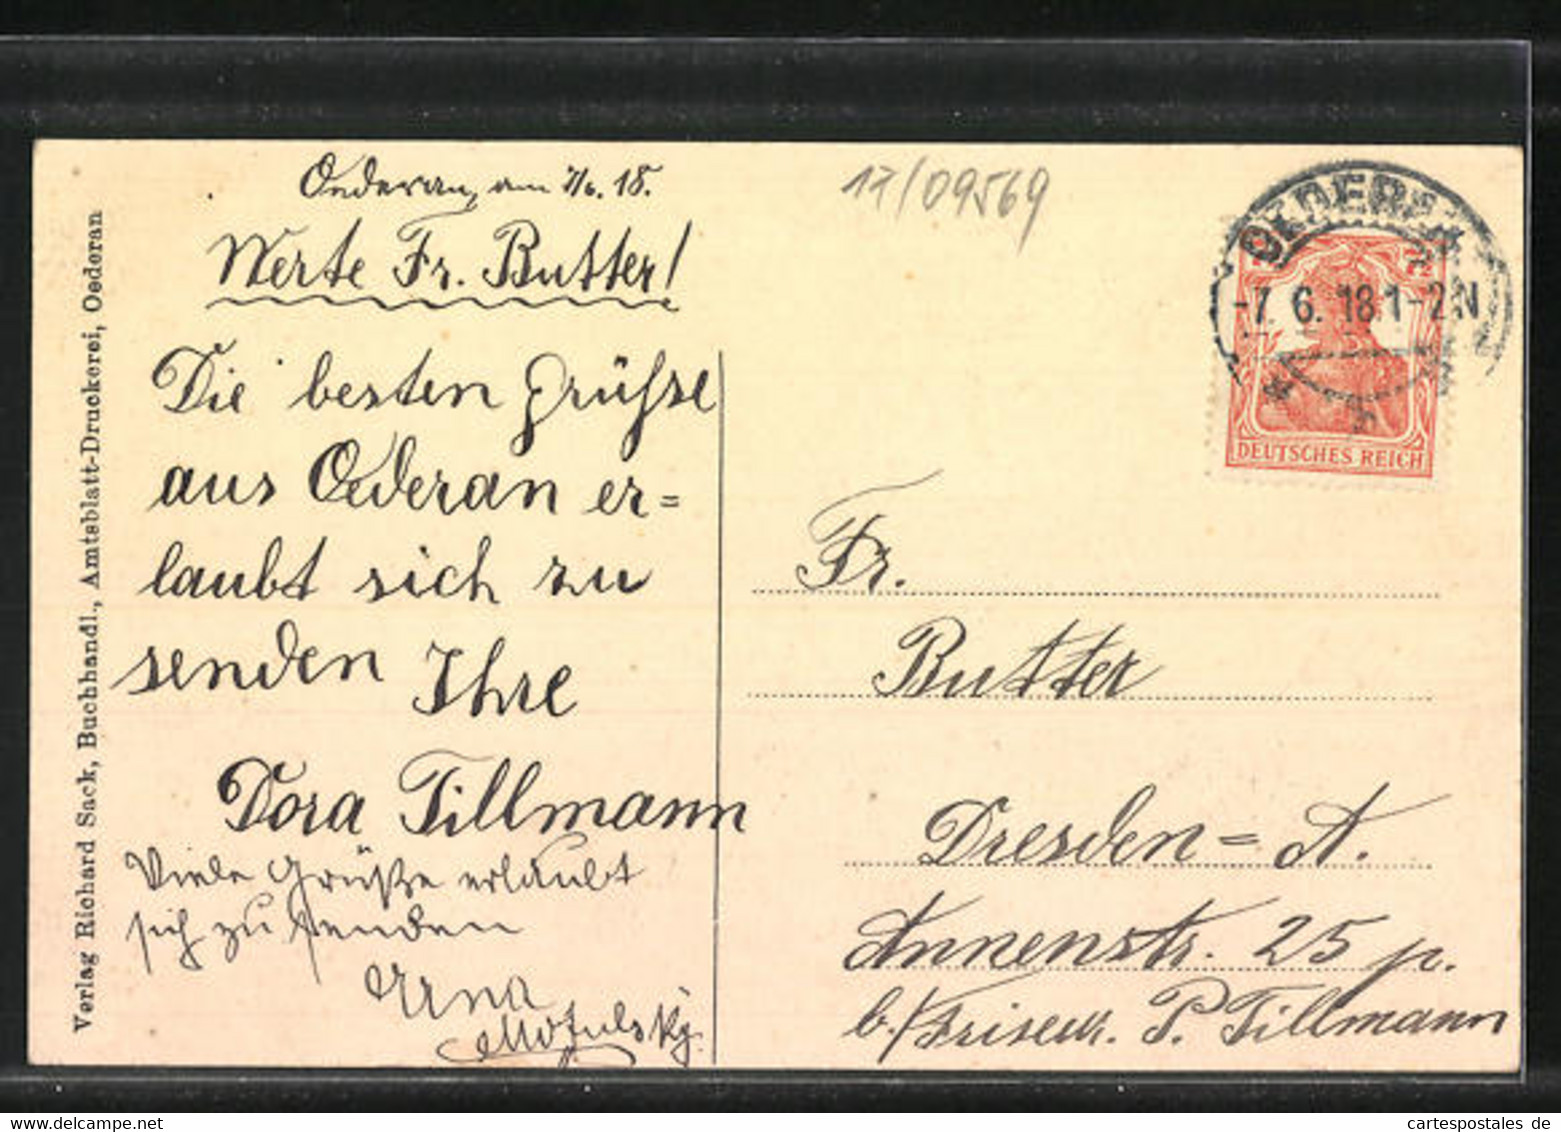 Oederan, am 7/6. 18.
Werte Fr. Butter!
Die besten Grüßse
aus Oederan er=
laubt sich zu
senden Ihre
Dora Tillmann
Viele Grüße erlaubt
sich zu senden
Erna
Motulsky.
Verlag Richard Sack, Buchhandl., Amtsblatt-Druckerei, Oederan
17/09569
OEDERAN
-7. 6. 18. 1-2 N
DEUTSCHES REICH
Fr.
Butter
Dresden=A.
Annenstr. 25 p.
b./Friseur. P. Tillmann
cartespostales de